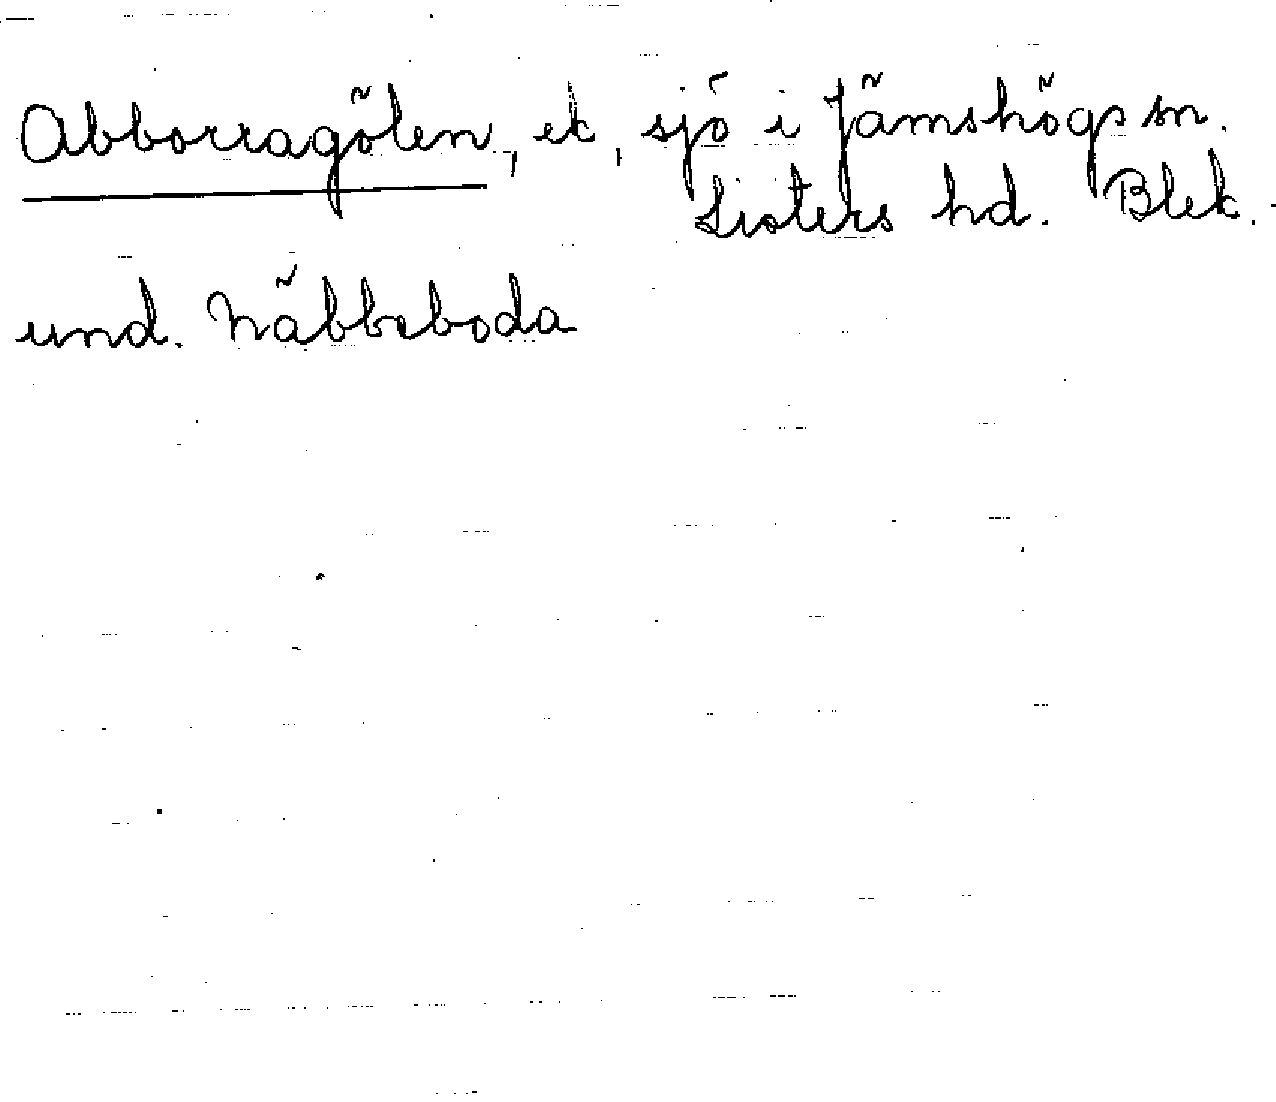 Abborragölen, ek, sjö i Jämshögs sn.
Listers hd. Blek.
und. Näbbeboda